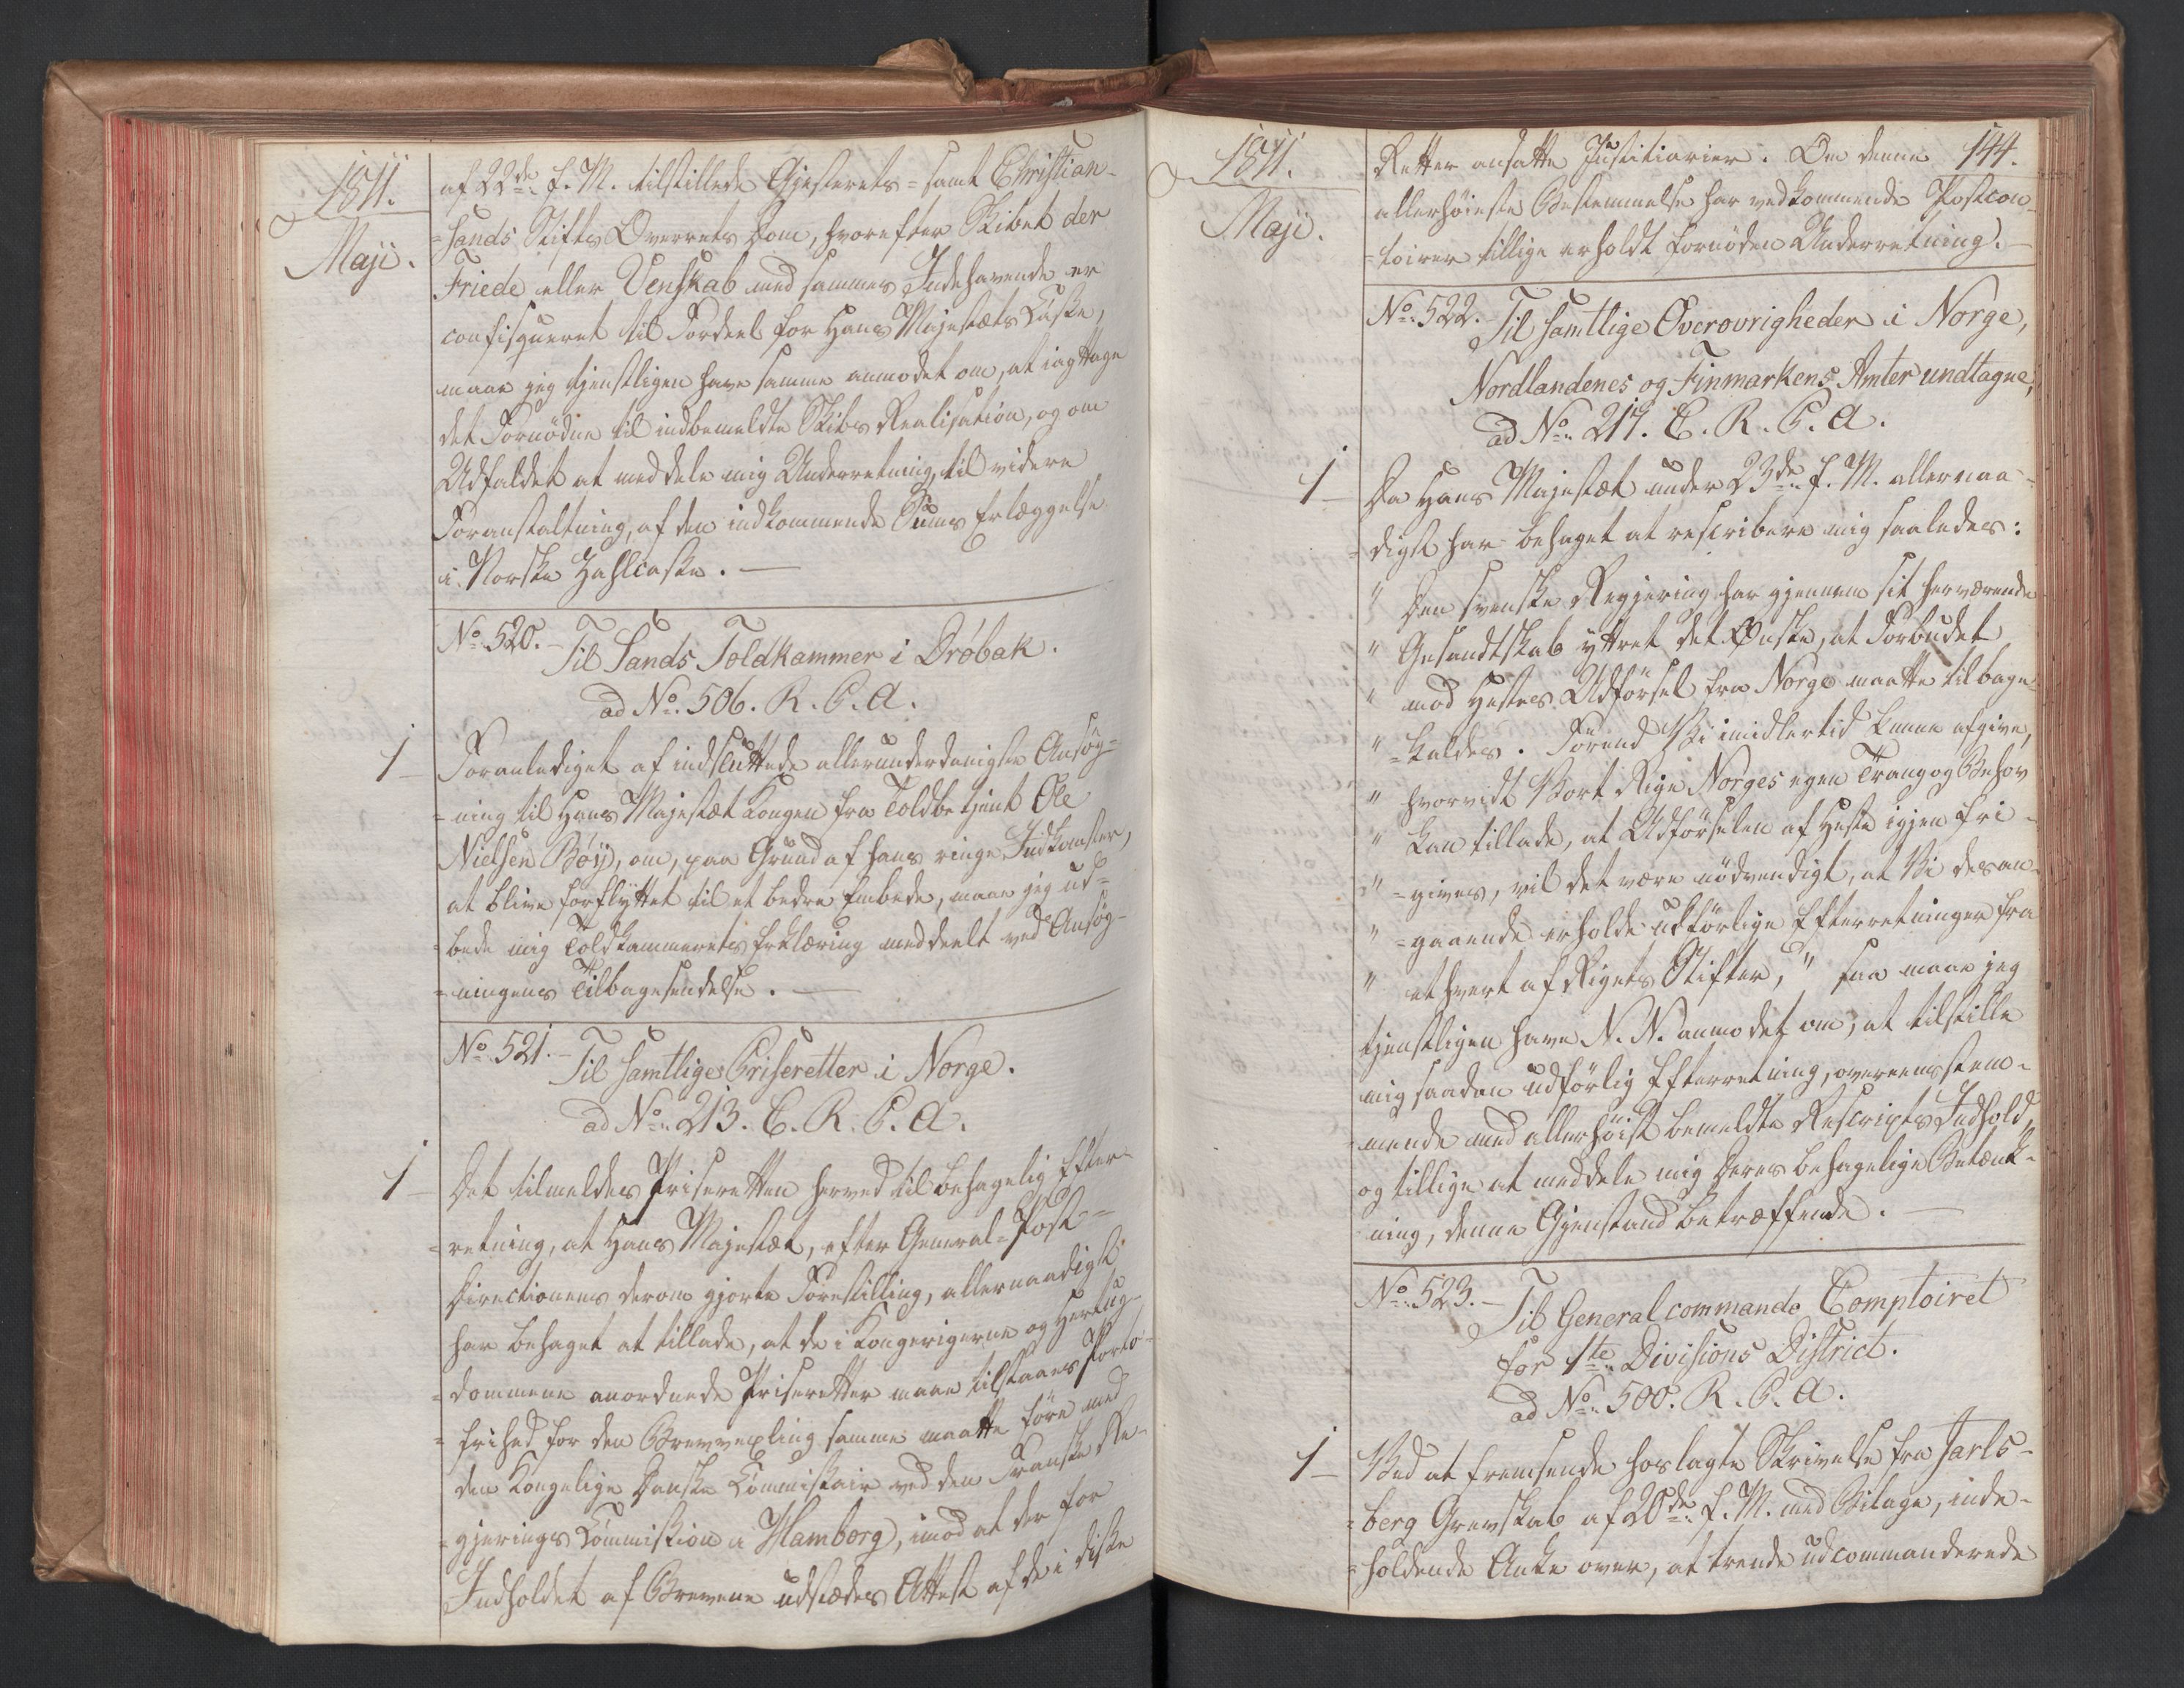 1811.
Maji.
af 22de f. M. tilstillede Gjesterets- samt Christian-
=sands Stifts Overrets Dom, hvorefter Skibet der
Friede eller Venskab med sammes Indehavende er
confisqueret til Fordeel for Hans Majestæts Casse,
maae jeg tjenstligen have samme anmodet om, at iagttage
det Fornødne til indbemeldte Skibs Realisation, og om
Udfaldet at meddele mig Underretning, til videre
Foranstaltning, af den indkommende Sums Erlæggelse
i Norske Zahlcasse. —
No. 520. – Til Sands Toldkammer i Drøbak.
ad No. 506. R. P. A.
1 –
Foranlediget af indsluttede allerunderdanigste Ansøg-
=ning til Hans Majestæt Kongen fra Toldbetjent Ole
Nielsen Böy, om, paa Grund af hans ringe Indkomster,
at blive forflyttet til et bedre Embede, maae jeg ud-
=bede mig Toldkammerets Erklæring meddeelt ved Ansøg-
=ningens Tilbagesendelse. —
No. 521. – Til samtlige Priseretter i Norge.
ad No. 213. C. R. P. A.
1 –
Det tilmeldes Priseretten herved til behagelig Efter-
=retning, at Hans Majestæt, efter General-Post-
Directionens derom gjorte Forestilling, allernaadigst
har behaget at tillade, at de i Kongerigerne og Hertug-
=dommene anordnede Priseretter maae tilstaaes Porto-
=frihed for den Brevvexling samme maatte føre med
den Kongelige Danske Commissair ved den Franske Re-
=gjerings Commission i Hamborg, imod at der for
Indholdet af Brevene udstædes Attest af de i disse
1811.
Maji.
144.
Retter ansatte Justitiarier. Om denne
allerhøieste Bestemmelse har vedkommende Postcon-
=toirer tillige erholdt fornøden Underretning. —
No. 522. – Til samtlige Overøvrigheder i Norge,
Nordlandenes og Finmarkens Amter undtagne,
ad No. 217. C. R. P. A.
1 –
Da Hans Majestæt under 23de f. M. allernaa-
=digst har behaget at rescribere mig saaledes:
" Den svenske Regjering har gjennem sit herværende
" Gesandtskab yttret det Ønske, at Forbudet
" mod Hestes Udførsel fra Norge maatte tilbage-
" =kaldes. Førend Vi imidlertid kunne afgive,
" hvorvidt Vort Rige Norges egen Trang og Behov
" kan tillade, at Udførselen af Heste igjen fri-
" =gives, vil det være nødvendigt, at Vi desan-
" =gaaende erholde udførlige Efterretninger fra
" ethvert af Rigets Stifter," saa maae jeg
tjenstligen have N. N. anmodet om, at tilstille
mig saadan udførlig Efterretning, overeensstem-
=mende med allerhøist bemeldte Rescripts Indhold,
og tillige at meddele mig Deres behagelige Betænk-
=ning, denne Gjenstand betræffende. —
No. 523. – Til General commando Comptoiret
for 1te Divisions District.
ad No. 500. R. P. A.
1 –
Ved at fremsende hoslagte Skrivelse fra Jarls-
=berg Grevskab af 20de f. M. med Bilage, inde-
=holdende Anke over, at trende udcommanderede